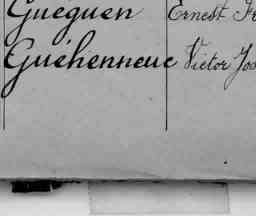 Gueguen Ernest Fr
Guéhenneuc Victor Jos